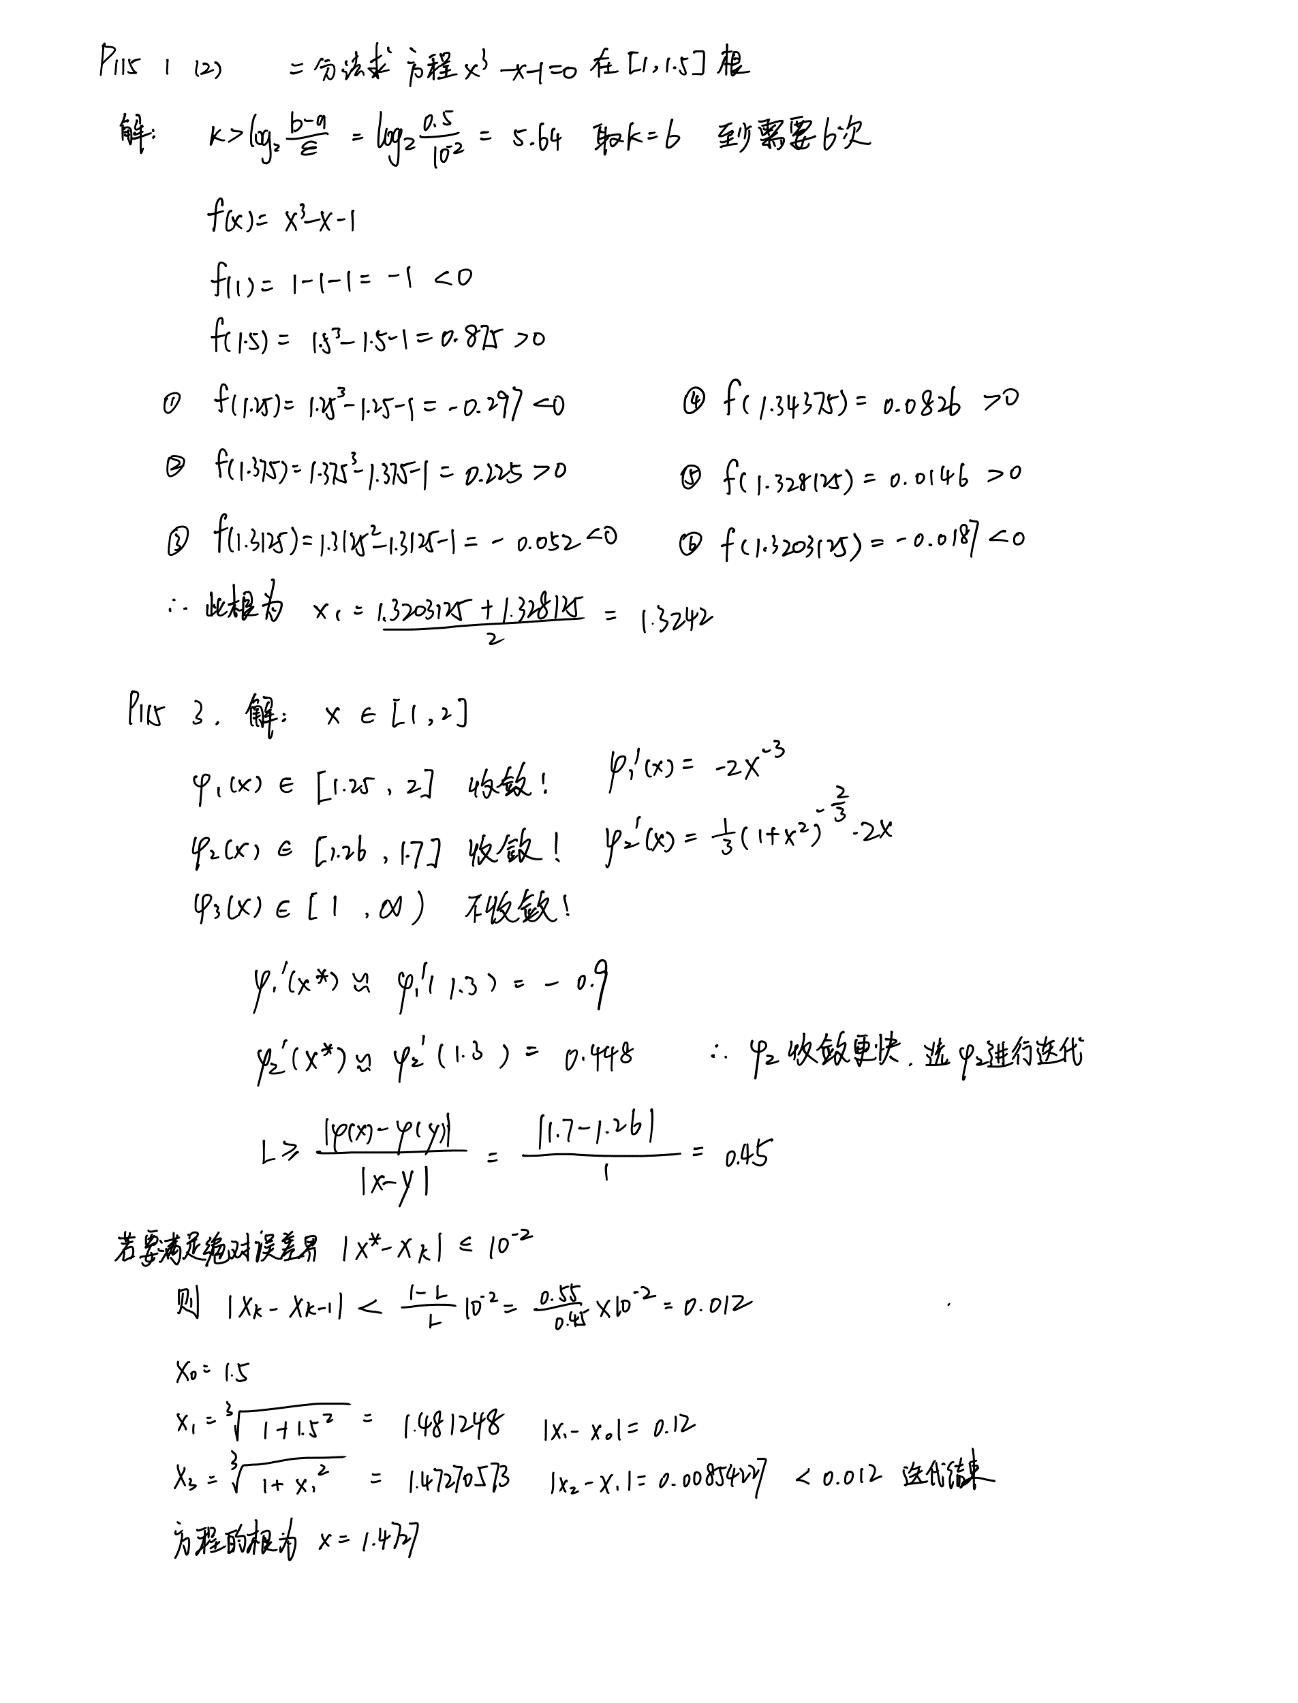 P115 1 (2) 二分法求方程 x³-x-1=0 在[1,1.5]根
解: K>log₂ (b-a)/ε = log₂ 0.5/10⁻² = 5.64 取k=6 至少需要6次
f(x)= x³-x-1
f(1)= 1-1-1= -1 <0
f(1.5)= 1.5³-1.5-1=0.875>0
① f(1.25)=1.25³-1.25-1=-0.297<0
② f(1.375)=1.375³-1.375-1=0.225>0
③ f(1.3125)=1.3125²-1.3125-1=-0.052<0
④ f(1.34375)=0.0826 >0
⑤ f(1.328125)=0.0146 >0
⑥ f(1.3203125)=-0.0187<0
∴ 此根为 x₁ = (1.3203125+1.328125)/2 = 1.3242
P115 3. 解: x ∈ [1,2]
φ₁(x) ∈ [1.25, 2] 收敛! φ₁'(x)= -2x⁻³
φ₂(x) ∈ [1.26, 1.7] 收敛! φ₂'(x)= 1/3 (1+x²)^(-2/3)·2x
φ₃(x) ∈ [1, ∞) 不收敛!
φ₁'(x*) ≈ φ₁'(1.3) = -0.9
φ₂'(x*) ≈ φ₂'(1.3) = 0.448 ∴ φ₂收敛更快. 选φ₂进行迭代
L ≥ |φ(x)-φ(y)|/|x-y| = |1.7-1.26|/1 = 0.45
若要满足绝对误差界 |x*-xₖ| ≤ 10⁻²
则 |xₖ-xₖ₋₁| < (1-L)/L 10⁻² = 0.55/0.45 ×10⁻² = 0.012
x₀= 1.5
x₁ = ³√(1+1.5²) = 1.481248 |x₁-x₀|= 0.12
x₃ = ³√(1+x₁²) = 1.47270573 |x₂-x₁|= 0.00854227 < 0.012 迭代结束
方程的根为 x= 1.4727